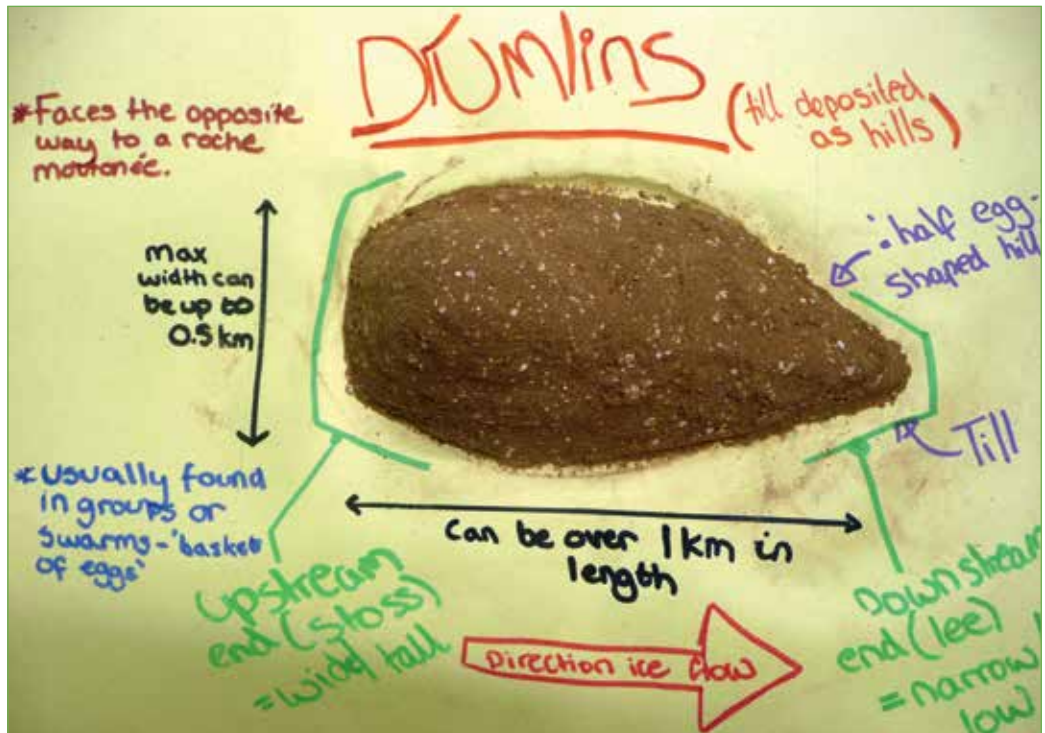 Drumlins
(till deposited
as hills)
*Faces the opposite
way to a roche
moutonée.
max
width can
be up to
0.5 km
half egg-
shaped hill
Till
*usually found
in groups or
swarms - 'basket
of eggs'
can be over 1 km in
length
upstream
end (stoss)
= wide tall
Direction ice flow
Downstream
end (lee)
= narrow
low